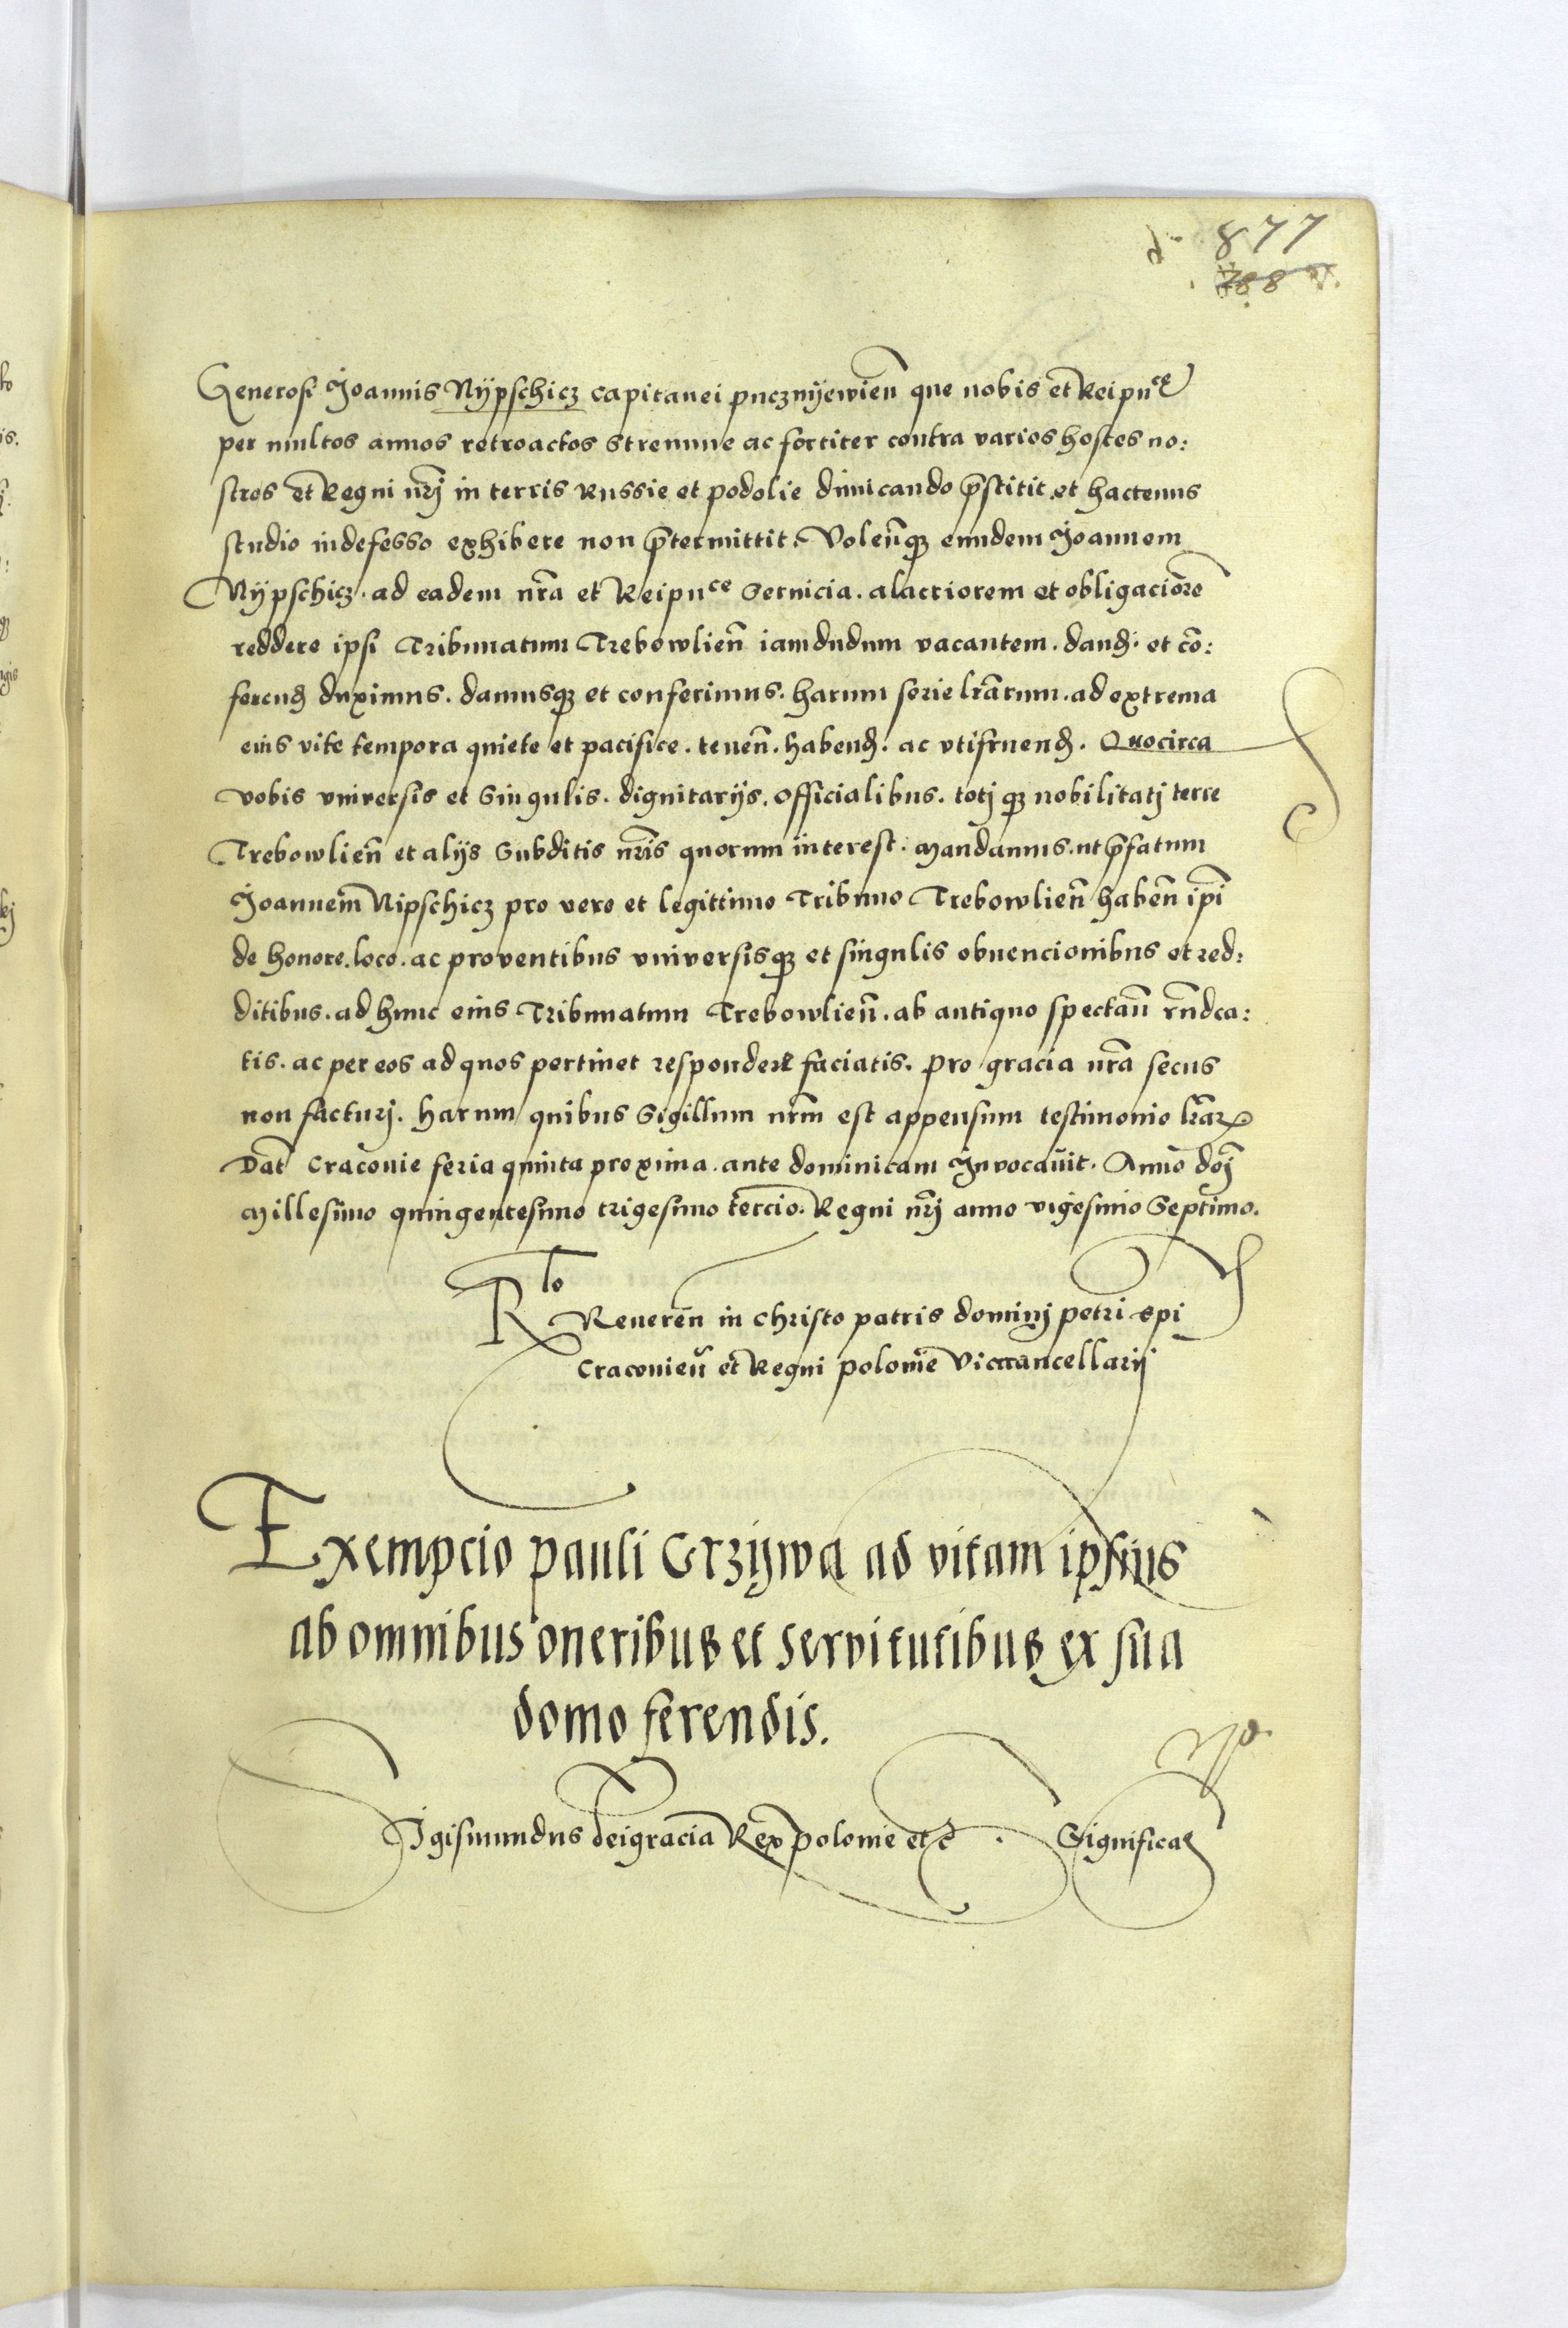 877
788
Generosi Joannis Nypschicz capitanei pnczmyewien̄ que nobis et Reipuce
per multos annos retroactos strenuue ac fortiter contra varios hostes no:
stros et Regni nr̄j in terris Russie et podolie dimicando p̄stitit et hactenus
studio indefesso exhibere non p̄termittit. Volen̄qȝ eundem Joannem
Nypschicz. ad eadem nr̄a et Reipuce Seruicia. alacriorem et obligaciorē
reddere ipsi Tribunatum Trebowlien̄ iamdudum vacantem. dand. et cō:
ferend duximus. damusqȝ et conferimus. harum serie lr̄arum. ad extrema
eius vite tempora quiete et pacifice. tenen̄. habend. ac vtifruend. Quocirca
vobis vniversis et Singulis. dignitarijs. Officialibus. totj qȝ nobilitatj terre
Trebowlien̄ et alijs Subditis nr̄is quorum interest. mandamus. ut p̄fatum
Joannem Nipschicz pro vero et legittimo Tribuno Trebowlien̄ haben̄ ip̄i
de honore. loco. ac proventibus vniversisqȝ et singulis obuencionibus et red:
ditibus. ad hunc eius Tribunatum Trebowlien̄. ab antiquo spectan̄ rn̄dea:
tis. ac per eos ad quos pertinet respondere faciatis. pro gracia nr̄a secus
non facturj. harum quibus Sigillum nr̄m est appensum testimonio lr̄arꝝ
Dat̄ Cracouie feria quinta proxima. ante dominicam Jnvocavit. Anno dn̄j
Millesimo quingentesimo trigesimo tercio. Regni nr̄j anno vigesimo Septimo.
Rlo Reueren̄ in christo patris dominj petri epi
Cracouien̄ et Regni polonie Vicecancellarij
Exempcio pauli Grzywa ad vitam ipsius
ab omnibus oneribus et servitutibus ex sua
domo ferendis.
Sigismundus dei gracia Rex polonie etc̄. Significa